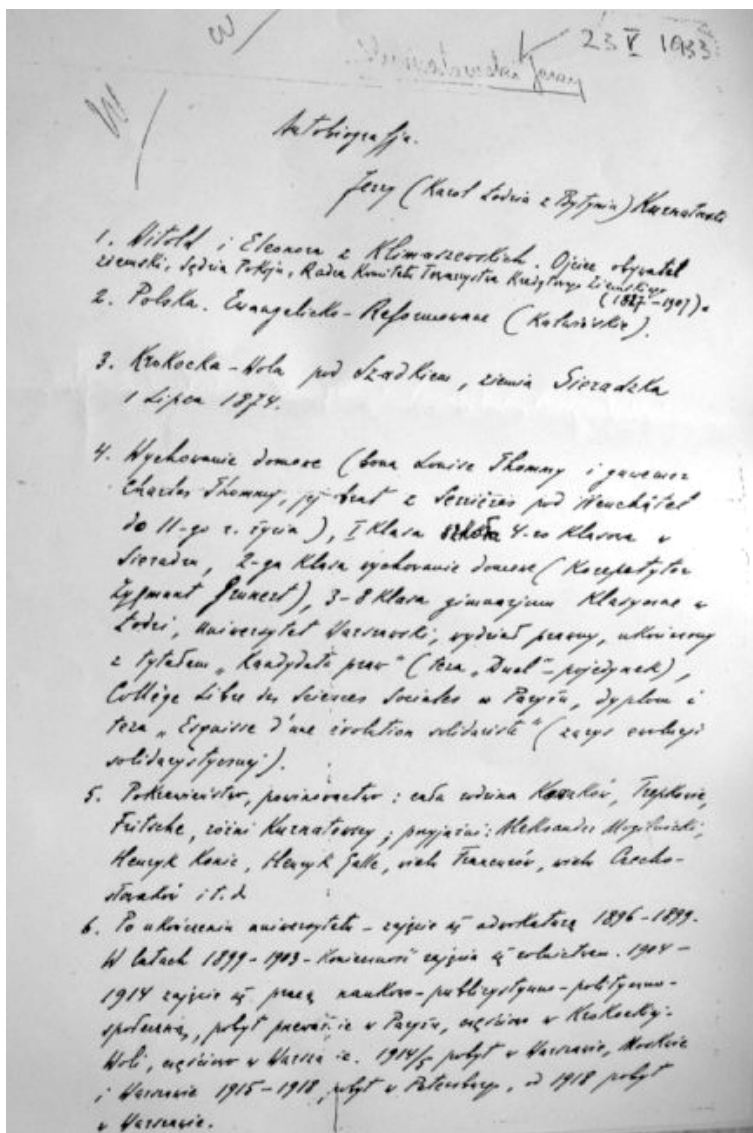 23 V 1933
Autobiografja.
Jerzy (Karol Łodzia z Bytynia) Kurnatowski
1. Witold i Eleonora z Klimaszewskich. Ojciec obywatel
ziemski, Sędzia Pokoju, Radca Komitetu Towarzystwa Kredytowego Ziemskiego
(1827-1907).
2. Polska. Ewangelicko-Reformowane (Kalwińskie).
3. Krokocka-Wola pod Szadkiem, ziemia Sieradzka
1 Lipca 1874.
4. Wychowanie domowe (bona Louise Thommy i guwerner
Charles Thommy, jej brat z Serrières pod Neuchâtel
do 11-go r. życia), I klasa szkoła 4-ro klasowa w
Sieradzu, 2-ga klasa wychowanie domowe (Korepetytor
Zygmunt Grunert), 3-8 klasa gimnazjum klasyczne w
Łodzi, Uniwersytet Warszawski, wydział prawny, ukończony
z tytułem „Kandydata praw" (teza „Duel" - pojedynek),
Collège Libre des Sciences Sociales w Paryżu, dyplom i
teza „Esquisse d'une évolution solidariste" (zarys ewolucji
solidarystycznej).
5. Pokrewieństwo, powinowactwo: cała rodzina Trepkowie,
Fritsche, różni Kurnatowscy; przyjaźni: Aleksander Mogilnicki,
Henryk Konic, Henryk Galle, wielu Francuzów, wielu Czecho-
słowaków i t. d.
6. Po ukończeniu uniwersytetu - zajęcie się adwokaturą 1896-1899.
W latach 1899-1903 - konieczność zajęcia się rolnictwem. 1904-
1914 zajęcie się pracą naukowo-publicystyczno-polityczno-
społeczną, pobyt przeważnie w Paryżu, częściowo w Krokockiej-
Woli, częściowo w Warszawie. 1914/5 pobyt w Warszawie, Moskwie
i Warszawie 1915-1918 pobyt w Petersburgu, od 1918 pobyt
w Warszawie.